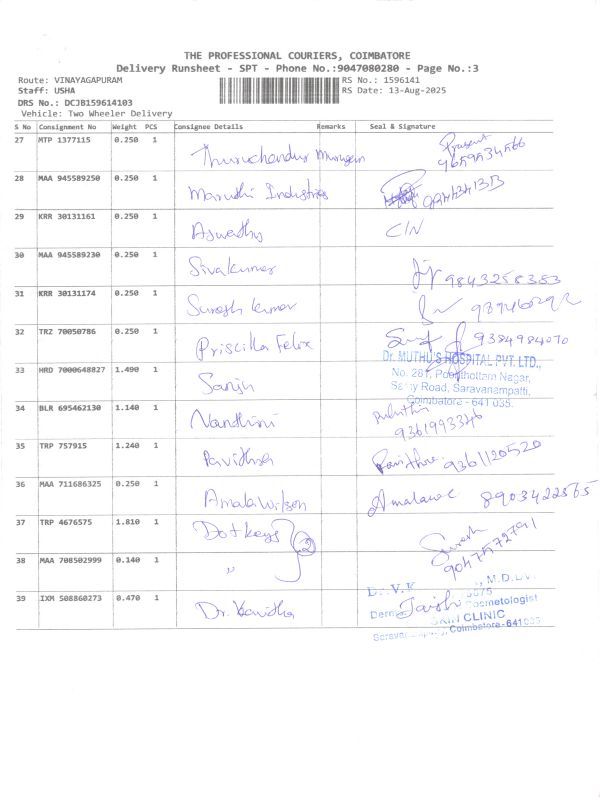 THE PROFESSIONAL COURIERS, COIMBATORE
Delivery Runsheet - SPT - Phone No.:9047080280 - Page No.:3
Route: VINAYAGAPURAM RS No.: 1596141
Staff: USHA RS Date: 13-Aug-2025
DRS No.: DCJB159614103
Vehicle: Two Wheeler Delivery
S No Consignment No Weight PCS Consignee Details Remarks Seal & Signature
27 MTP 1377115 0.250 1 Thiruchendur Murugan Prasant
9659534566
28 MAA 945589250 0.250 1 Maruthi Industries
29 KRR 30131161 0.250 1 Aswathy C/N
30 MAA 945589230 0.250 1 Sivakumar 9843258353
31 KRR 30131174 0.250 1 Suresh Kumar
32 TRZ 70050786 0.250 1 Priscilla Felix 9384984070
Dr. MUTHU'S HOSPITAL PVT. LTD.,
33 HRD 7000648827 1.490 1 Sanju No. 261, Poonthottam Nagar,
Sathy Road, Saravanampatti,
Coimbatore - 641 035.
34 BLR 695462130 1.140 1 Nandhini
9361993346
35 TRP 757915 1.240 1 Pavithra Pavithra 9361120520
36 MAA 711686325 0.250 1 Amala Wilson Amalawil 8903422565
37 TRP 4676575 1.810 1 Dot keys 2 Suresh
9047572791
38 MAA 708502999 0.140 1 "
M.D.D.V.
39 IXM 508860273 0.470 1 Dr. Kavitha Cosmetologist
SKIN CLINIC
Coimbatore - 641035